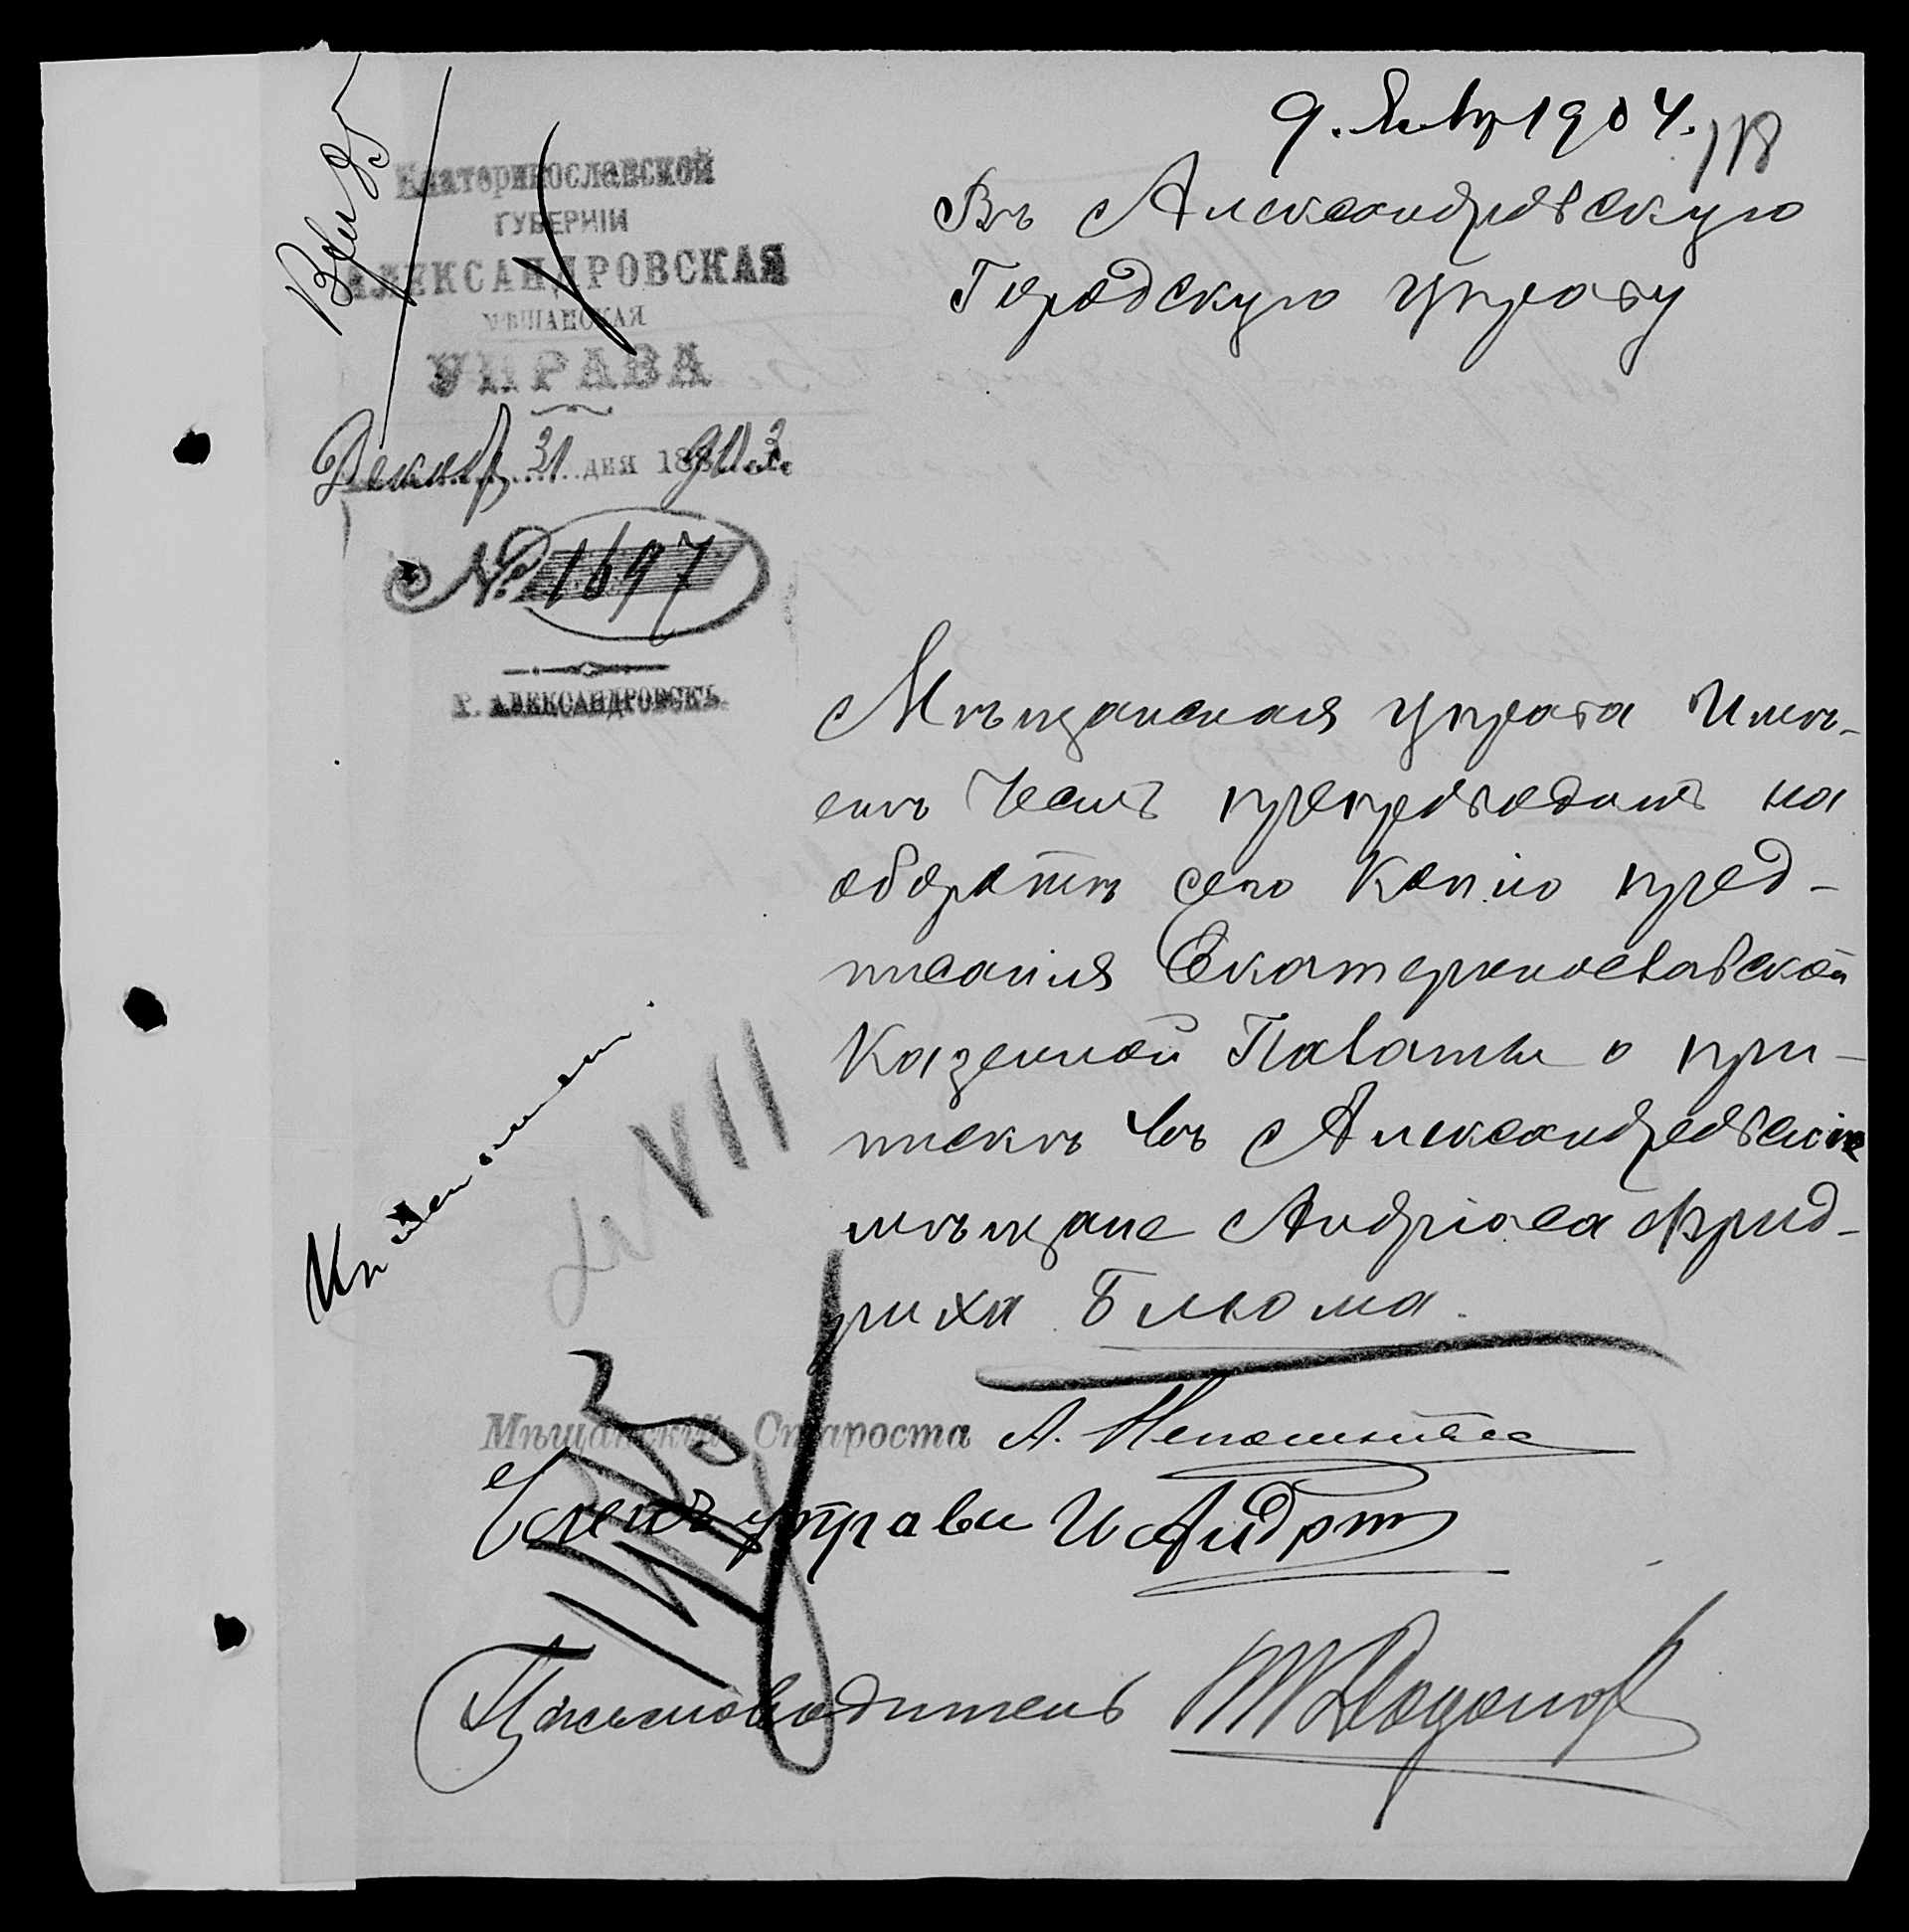 9. Янв 1904.
118
Екатеринославской
ГУБЕРНІИ
АЛЕКСАНДРОВСКАЯ
МѢЩАНСКАЯ
УПРАВА
Декабр 31 дня 1903
№ 1697
Г. АЛЕКСАНДРОВСКЪ.
Въ Александровскую
Городскую управу
Мѣщанская управа Имѣ-
етъ Честь препроводить на
оборотѣ сего Копію пред-
писанія Екатеринославской
Казенной Палаты о при-
пискѣ въ Александровскіе
мѣщане Андріаса Фрид-
риха Бльома.
VII
Мѣщанскій Староста А.
Членъ управы И
Письмоводитель